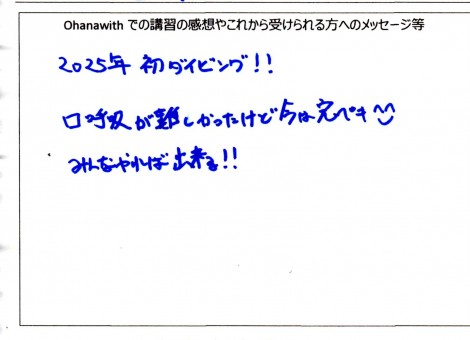 Ohanawith での講習の感想やこれから受けられる方へのメッセージ等
2025年 初ダイビング!!
口呼吸が難しかったけど今は完ペキ
みんなやれば出来る!!